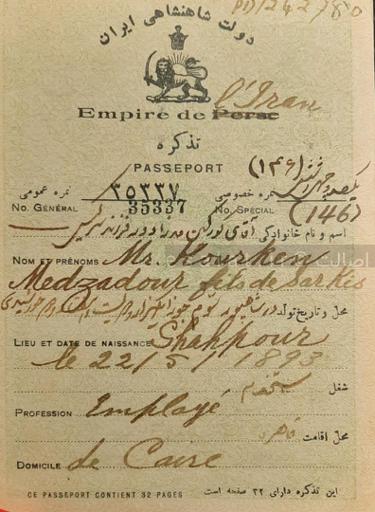 PD/242780
دولت شاهنشاهی ایران
Empire de Perse l'Iran
تذکره
PASSEPORT
(۱۴۶)
نمره عمومی ۳۵۳۳۷ نمره خصوصی
No. GÉNÉRAL 35337 No. SPÉCIAL (146)
اسم و نام خانوادگی آقای
NOM ET PRÉNOMS Mr. Kourken
Medzadour fils de Sarkis
محل و تاریخ تولد
LIEU ET DATE DE NAISSANCE Shahpour
le 22/5/1893
شغل مستخدم
PROFESSION Employé
محل اقامت قاهره
DOMICILE de Caire
این تذکره دارای ۳۲ صفحه است
CE PASSEPORT CONTIENT 32 PAGES